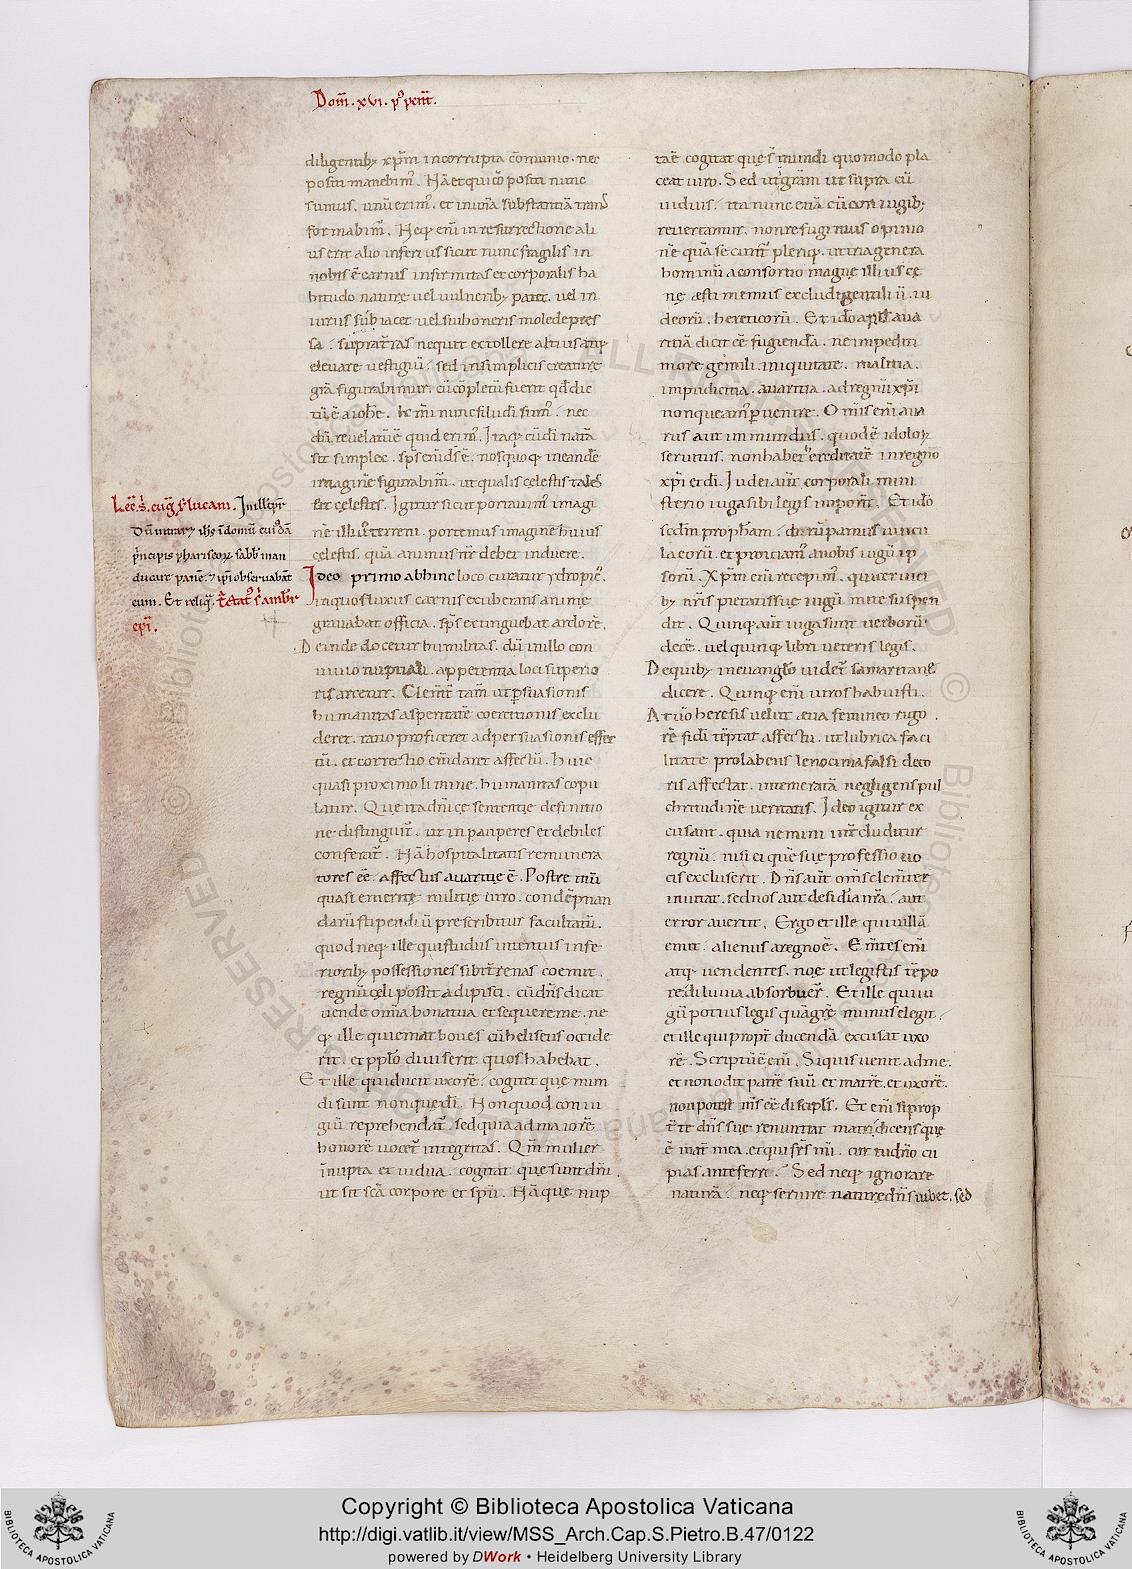 Dom̄. xvi. p᷒ pent̄.
diligentib; xp̄m incorrupta cōmunio. nec
positi manebim᷒. Nā et qui cōpositi nunc
sumus. unū erim᷒. et in unā substantiā trans
formabim᷒. Neq; eni in resurrectione ali
us erit alio inferius sicut nunc fragilis in
nobis ē carnis infirmitas et corporalis ha
bitudo naturę uel uulnerib; patet. uel in
iuriis subiacet uel sui honeris mole depres
sa. supra t̄ras nequit extollere altius atq;
eleuare uestigiū. sed in simplicis creaturę
grā figurabimur. cū cōpletū fuerit qd̄ dic
tū ē a ioh̄e. k̄mi nunc filii di sum᷒. nec
dū reuelatū ē quid erim᷒. Itaq; cū di natā
sit simplex. sp̄s eni d̄s ē. nos quoq; in eandē
imaginē figurabim᷒. ut qualis cęlestis tales
sint cęlestes. Igitur sicut portauim᷒ imagi
nē illius terreni. portemus imaginē huius
cęlestis. quā animus nr̄ debet induere.
Lec̄. s̄. euḡ. s̄. lucam. In ill̄ tp̄r
Dū intrar& ih̄s ī domū cui᷒dā
p̄ncipis phariseoꝝ sabb̄ man
ducare panē. & ip̄i obseruabāt
eum. Et reliq̄. Tc̄tat᷒ s̄. ambr̄
ep̄i.
Ideo primo ab hinc loco curatur ydropic᷒.
in quo fluxus carnis exuberans animę
grauabat officia. sp̄s extinguebat ardorē.
Deinde docetur humilitas. dū in illo con
uiuio nuptiali. appetentia loci superio
ris arcetur. Clem̄t̄ tam̄ ut psuasionis
humanitas asperitatē coercitionis exclu
deret. ratio proficeret ad persuasionis effec
tū. et correctio em̄daret affectū. huic
quasi proximo limine. humanitas copu
latur. Quę ita dn̄icę sententię definitio
ne distinguit̄. ut in pauperes et debiles
conferat̄. Nā hospitalitatis remunera
tores eē. affectus auaritię ē. Postremū
quasi emeritę militię uiro. condēpnan
darū stipendiū prescribitur facultatū.
quod neq; ille qui studiis intentus infe
riorib; possessiones sibi t̄renas coemit.
regnū cęli possit adipisci. cū dn̄s dicat
uende om̄ia bona tua et sequere me. ne
q; ille qui emat boues cū heliseus occide
rit. et pplo diuiserit quos habebat.
Et ille qui ducit uxorē. cogitet que mun
di sunt non quę di. Non quod coniu
giū reprehendat̄. sed quia ad maiorē
honorē uocet̄ integritas. Qm̄ mulier
īnupta et uidua. cogitat que sunt dn̄i.
ut sit scā corpore et spū. Nā quę nup
taē cogitat que s̄ mundi quomodo pla
ceat uiro. Sed ut grām ut supra cū
uiduis. ita nunc etiā cū coniugib;
reuertamur. non refugimus opinio
nē quā secuntr̄ pleriq;. ut tria genera
hominū a consortio magnę illius cę
nę ęstimemus excludi gentiliū. iu
deorū. hereticorū. Et ido apl̄s aua
ritiā dicit eē fugiendā. ne impediti
more gentili. iniquitate. malitia.
impudicitia. auaritia. ad regnū xp̄i
non queam᷒ puenire. Om̄is eni aua
rus aut inmundus. quod ē idoloꝝ
seruitus. non habet hereditatē in regno
xp̄i et di. Iudei aūt corporali mini
sterio iuga sibi legis inponūt. Et ido
scdm propham. dirūpamus uincu
la eorū. et proiciam᷒ a nobis iugū ip
sorū. Xpm eni recepim᷒. qui ceruici
b; nr̄is pietatis suę iugū mite suspen
dit. Quinq; aūt iuga sunt uerborū
decē. uel quinq; libri ueteris legis.
De quib; in euanglo uidet̄ samaritanę
dicere. Quinq; eni uiros habuisti.
At uo heresis uelut ęua femineo rigo
rē fidi tēptat affectu. ut lubrica faci
litate prolabens lenocinia falsi deco
ris affectat. intemeratā negligens pul
chritudinē ueritatis. Ideo igitur ex
cusant. quia nemini int̄cluditur
regnū. nisi ei quē suę professio uo
cis excluserit. Dn̄s aūt om̄s clem̄ter
inuitat. sed nos aut desidia nr̄a. aut
error auertit. Ergo et ille qui uillā
emit. alienus a regno ē. Em̄tes eni
atq; uendentes. noę ut legistis tēpo
re. diluuia absorbuer̄. Et ille qui iu
gū potius legis quā grē munus elegit.
et ille qui propt̄ ducendā excusat uxo
rē. Scriptū ē eni. Si quis uenit ad me.
et non odit patrē suū et matrē. et uxorē.
non potest m̄s eē discipls̄. Et eni si prop
t̄ te dn̄s suę renuntiat matri dicens que
ē mat̄ mea. et qui frs̄ mi. cur tu dn̄o cu
pias anteferre. Sed neq; ignorare
naturā. neq; seruire naturę dn̄s iubet. sed
Copyright © Biblioteca Apostolica Vaticana
http://digi.vatlib.it/view/MSS_Arch.Cap.S.Pietro.B.47/0122
powered by DWork • Heidelberg University Library